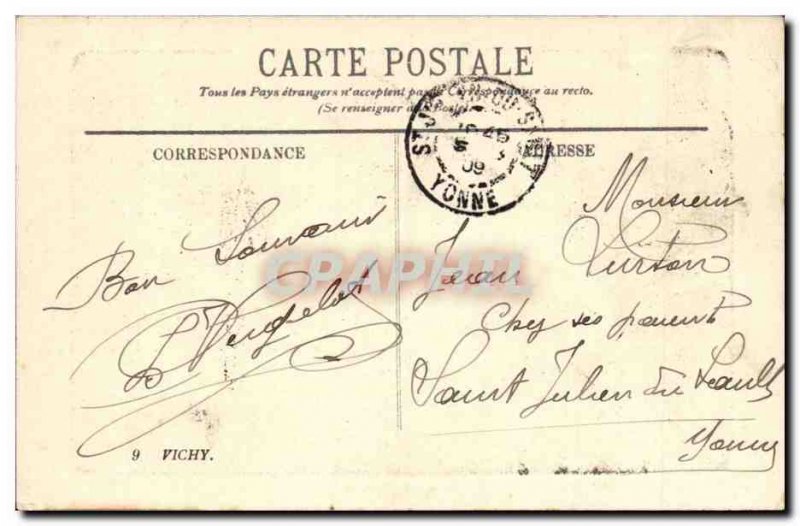 CARTE POSTALE
Tous les Pays étrangers n'acceptent pas la Correspondance au recto.
(Se renseigner à la Poste)
CORRESPONDANCE
ADRESSE
10 45
09
YONNE
Bon Souvenir
Monsieur
Jean
Chez ses parents
Saint Julien du Sault
Yonne
CPRAPHIL
9 VICHY.